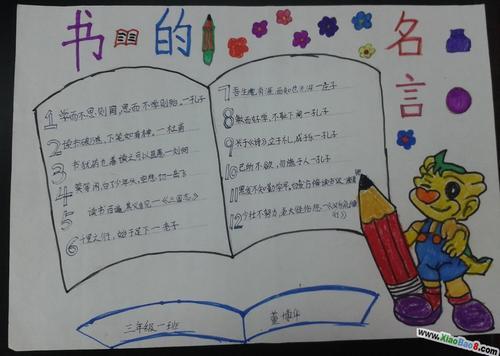 书的
名言
1 学而不思则罔,思而不学则殆。—孔子
2 读书破万卷,下笔如有神。—杜甫
3 书犹药也,善读之可以医愚—刘向
4 莫等闲,白了少年头,空悲切—岳飞
5 读书百遍,其义自见—《三国志》
6 千里之行,始于足下—老子
7 吾生也有涯,而知也无涯—庄子
8 敏而好学,不耻下问—孔子
9 立于礼,成于乐—孔子
10 己所不欲,勿施于人—孔子
11 黑发不知勤学早,白首方悔读书迟
12 少壮不努力,老大徒伤悲—《汉乐府
三年级一班
董博
www.XiaoBao8.com